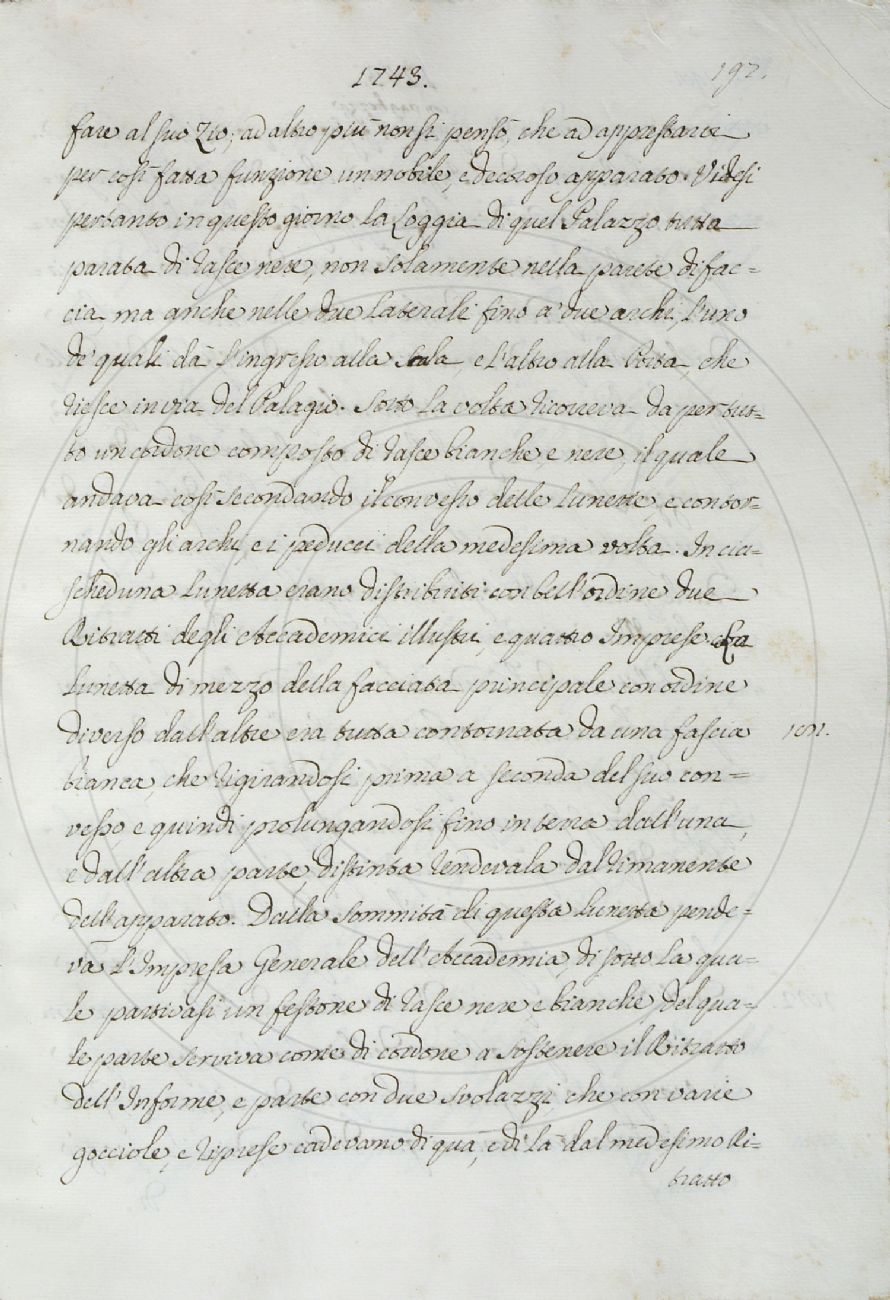 1743.
197.
fare al suo Zio; ad altro più non si pensò, che ad apprestarvi
per così fatta funzione un nobile, e decoroso apparato. Videsi
pertanto in questo giorno la Loggia di quel Palazzo tutta
parata di rasce nere, non solamente nella parete di fac=
cia, ma anche nelle due laterali fino a' due archi, l'uno
de' quali dà l'ingresso alla Scala, e l'altro alla Porta che
riesce in via del Palagio. Sotto la volta ricorreva da per tut=
to un cordone composto di rasce bianche, e nere, il quale
andava così secondando il convesso delle Lunette, e contor=
nando gli archi, e i peducci della medesima volta. In cia=
scheduna Lunetta erano distribuiti con bell'ordine due
Ritratti degli Accademici illustri, e quattro Imprese. La
Lunetta di mezzo della facciata principale con ordine
diverso dall'altre era tutta contornata da una fascia
bianca, che rigirandosi prima a seconda del suo con=
vesso, e quindi prolungandosi fino in terra dall'una,
e dall'altra parte, distinta rendevala dal rimanente
dell'apparato. Dalla sommità di questa Lunetta pende=
va l'Impresa Generale dell'Accademia, di sotto la qua=
le partivasi un festone di rasce nere e bianche, del qua=
le parte serviva come di cordone a sostenere il Ritratto
dell'Informe, e parte con due svolazzi, che con varie
gocciole, e riprese cadevano di quà, e di là dal medesimo Ri=
tratto